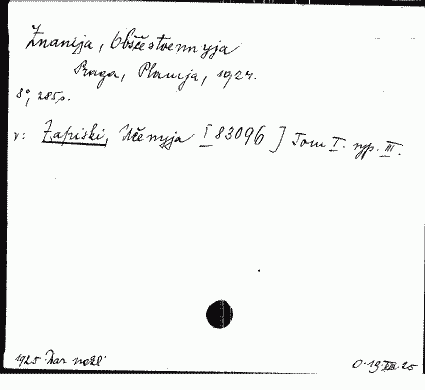 Znanija, Obščestvennyja
Praga, Plamja, 1924.
8°, 285 s.
v: Zapiski, Učenyja [ 83096 ] Tom I. vyp. III.
1925 Dar
0·19 VIII 25